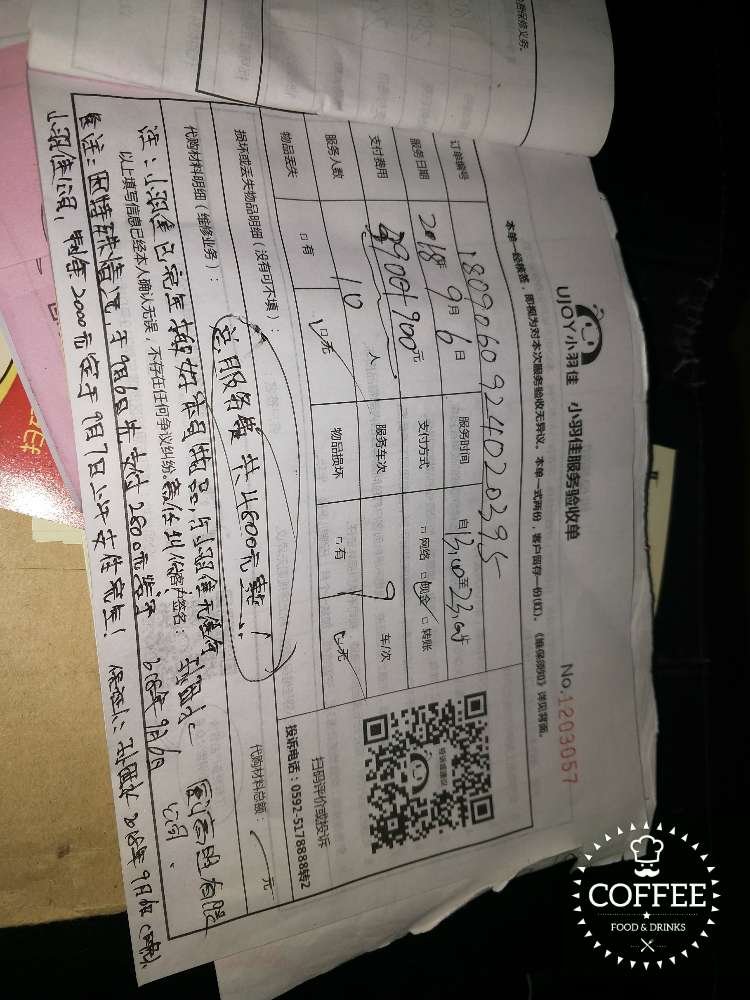 UJOY小羽佳 小羽佳服务验收单
No.1203057
本单一经核签，即视为对本次服务验收无异议。本单一式两份，客户留存一份(红)。《维保须知》详见背面。
订单编号 1809060924020395
服务日期 2018年9月6日 服务时间 自13:00至23:00止
支付费用 元 支付方式 □网络 □现金 □转账
服务人数 10人 服务车次 9车/次
物品丢失 □有 □无 物品损坏 □有 □无
扫码评价或投诉
投诉电话：0592-5178888转2
损坏或丢失物品明细（没有可不填）：
总服务费共4800元整！
代购材料明细（维修业务）： 代购材料总额： 元
注：小羽佳已完全 物品，与小羽佳无
以上填写信息已经本人确认无误，不存在任何争议纠纷。 客户签名：
2018年9月6日
备注：因特殊情况，于9月6日先支付2800元整于
小羽佳公司，剩余2000元定于9月7日上午支付完毕！
COFFEE
FOOD & DRINKS